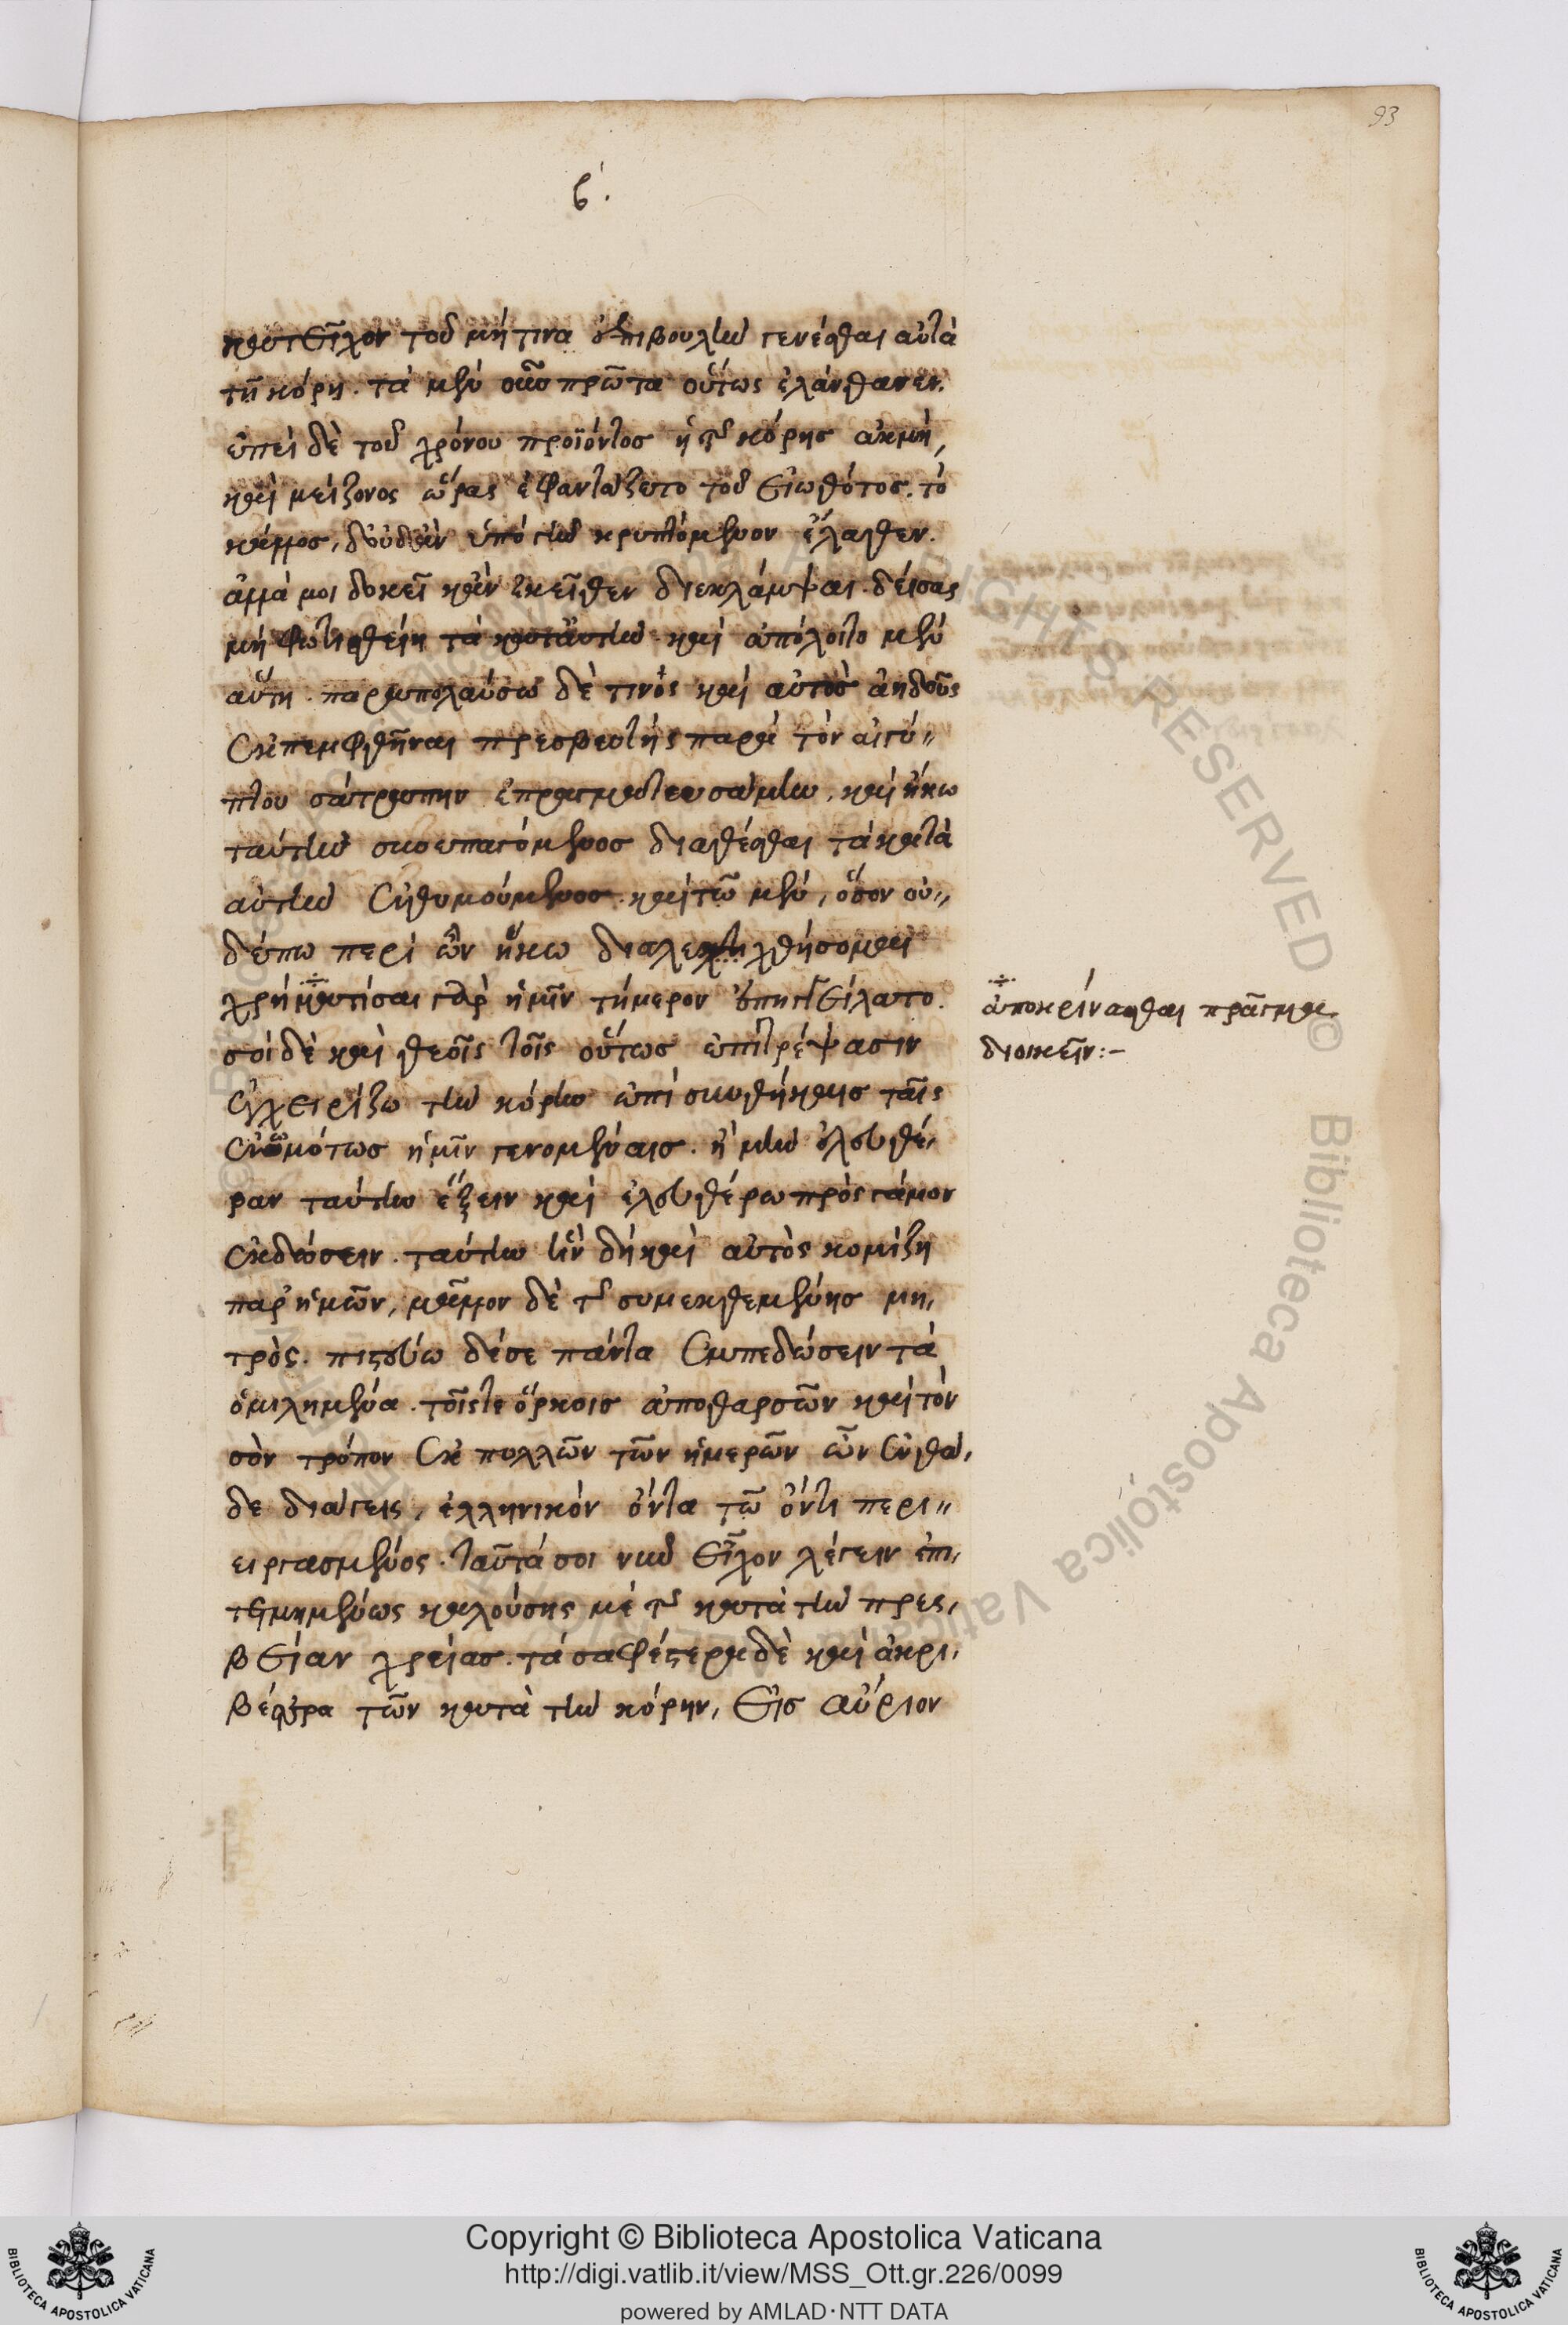 93
β΄.
κατεῖχον τοῦ μή τινα ἐπιβουλὴν γενέσθαι αὐτὰ
τῇ κόρῃ. τὰ μὲν οὖν πρῶτα οὕτως ἐλάνθανεν.
ἐπεὶ δὲ τοῦ χρόνου προϊόντος ἡ τῆς κόρης ἀκμή,
καὶ μείζονος ὥρας ἐφαντάζετο τοῦ εἰωθότος. τὸ
κάλλος, δ' οὐδὲν ὑπὸ γῆν κρυπτόμενον ἔλαθεν.
ἀλλά μοι δοκεῖ κἂν ἐκεῖθεν διεκλάμψαι. δείσας
μὴ φωτισθείη τὰ κατ' αὐτὴν καὶ ἀπόλοιτο μὲν
αὕτη. παραπολαύσω δέ τινος καὶ αὐτὸς ἀηδοῦς
ἐκπεμφθῆναι πρεσβευτὴς παρὰ τὸν αἰγύ〃
πτου σατράπην ἐπραγματευσάμην. καὶ ἥκω
ταύτην συνεπαγόμενος διαθέσθαι τὰ κατὰ
αὐτὴν ἐνθυμούμενος. καὶ τῷ μέν, ὅσον οὐ〃
δέπω περὶ ὧν ἥκω διαλεχθήσομαι
χρηματίσαι γὰρ ἡμῖν τήμερον ἐπηγγείλατο.
σοὶ δὲ καὶ θεοῖς τοῖς οὕτως ἐπιτρέψασιν
ἐγχειρίζω τὴν κόρην ἐπὶ συνθήκαις ταῖς
ἐνωμότως ἡμῖν γενομέναις. ἦ μὴν ἐλευθέ,
ραν ταύτην ἕξειν καὶ ἐλευθέρω πρὸς γάμον
ἐκδώσειν. ταύτην ἣν δὴ καὶ αὐτὸς κομίζῃ
παρ' ἡμῶν, μᾶλλον δὲ τῆς συνεκθεμένης μη,
τρός. πιστεύω δέ σε πάντα ἐμπεδώσειν τὰ
ὁμιλημένα. τοῖς τε ὅρκοις ἀποθαρσῶν καὶ τὸν
σὸν τρόπον ἐκ πολλῶν τῶν ἡμερῶν ὧν ἐνθά,
δε διάγεις, ἑλληνικὸν ὄντα τῷ ὄντι περι〃
ειργασμένος. ταῦτά σοι νῦν εἶχον λέγειν ἐπι,
τετμημένως καλούσης με τῆς κατὰ τὴν πρες,
βείαν χρείας. τὰ σαφέστερα δὲ καὶ ἀκρι,
βέστερα τῶν κατὰ τὴν κόρην, εἰς αὔριον
ἀποκρίνασθαι πρᾶγμα
διοικεῖν:-
Copyright © Biblioteca Apostolica Vaticana
http://digi.vatlib.it/view/MSS_Ott.gr.226/0099
powered by AMLAD·NTT DATA